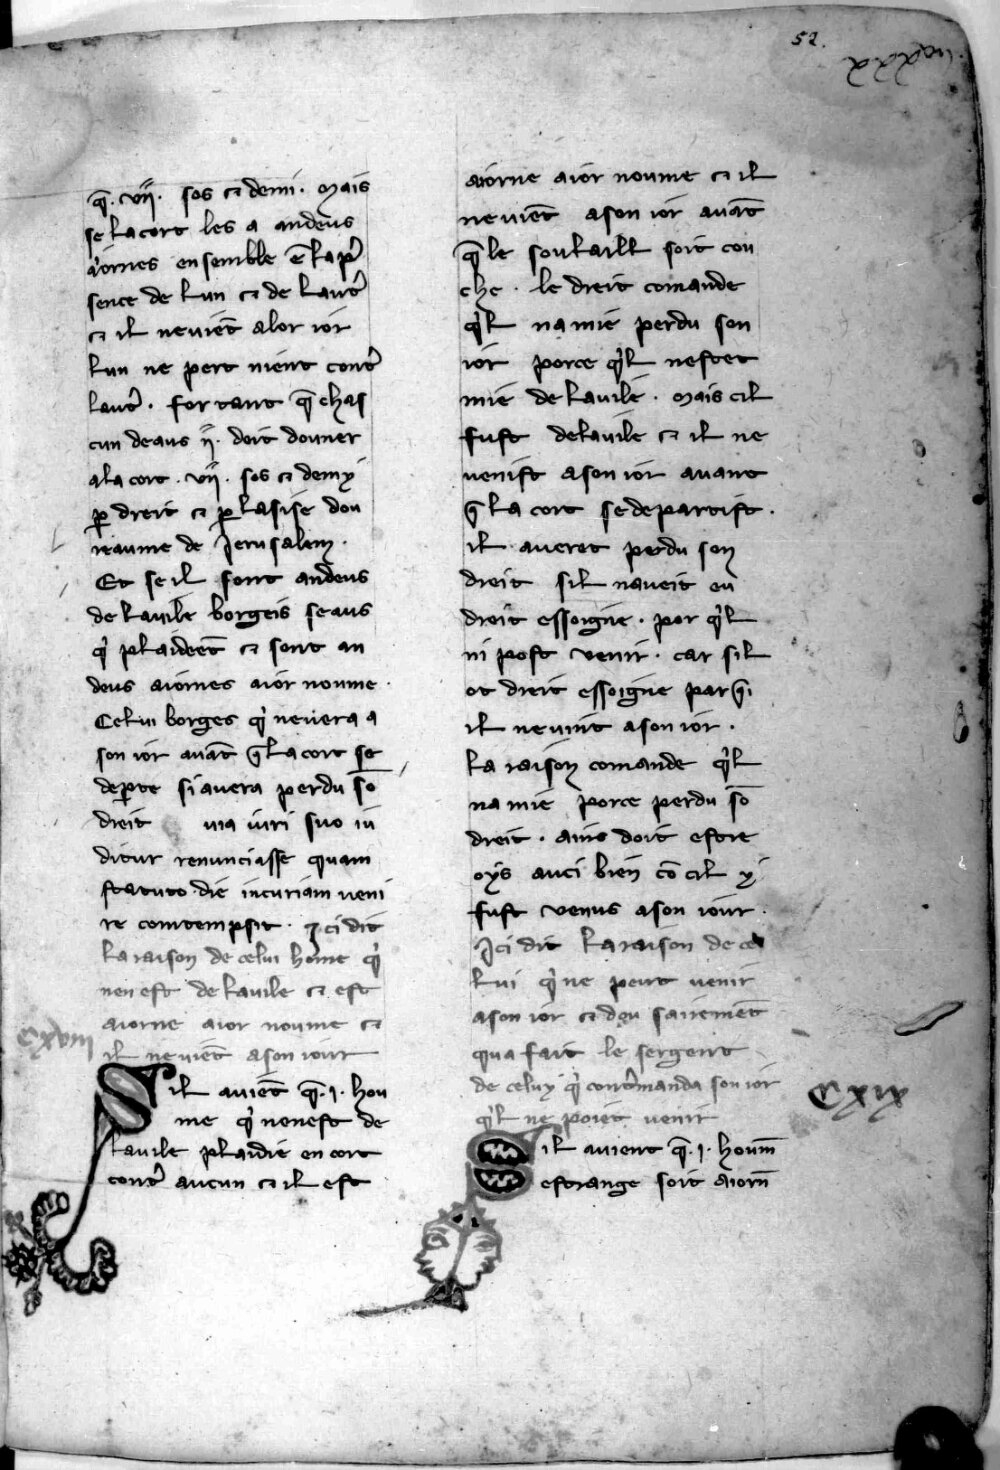 52.
q̄ .vii. sos ⁊ demi . Mais
se lacort les a andeus
aiornes ensemble ē lap̄
sence de lun ⁊ de laut͛
⁊ il neuiēt alor ior
lun ne pert nient cont͛
laut͛ . for tant q̄ chas
cun deaus ii . doit donner
ala cort . vii . sos ⁊ demy
ꝑ dreit ⁊ ꝑ lasise dou
reaume de Jerusalem .
Et se il sont andeus
de lauile borgeis seaus
qͥ plaideēt ⁊ sont an
deus aiornes aior noume .
Celui borges qͥ neuera a
son ior auāt q̄ lacort se
deꝑte si auera perdu sō
dreit uia iuri suo iu
ditur renunciasse quam
statuto die incuriam ueni
re comtempsit . Ici dit
la raison de celui home qͥ
nen est de lauile ⁊ est
aiorne aior noume ⁊
il neuiēt ason iour
CXVIII
Sil auiēt q̄ .i. hou
me qͥ nenest de
lauile plaidie en cort
cont͛ aucun ⁊ il est
aiorne aior noume ⁊ il
neuiēt ason ior auāt
q̄ le soulaill soit cou
che . le dreit comande
qͥl na mie perdu son
ior porce qͥl nestet
mie de lauile . Mais cil
fust delauile ⁊ il ne
uenist ason ior auant
q̄ la cort se departist .
il aueret perdu son
dreit sil naueit eu
dreit essoigne . por qͥl
ni post venir . car sil
ot dreit essoigne par q̄i
il neuint ason ior .
la raison comande qͥl
na mie porce perdu sō
dreit . ains doit estre
oys auci bien cō cil y
fust venus ason iour .
Ici dit la raison de ce
lui qͥ ne peut uenir
ason ior ⁊ dou sairemēt
qua fait le sergent
de celuy qͥ cont͛manda son ior
qͥl ne poiet uenir
CXIX
Sil auient q̄ .i. houm̄
estrange soit aiorn̄